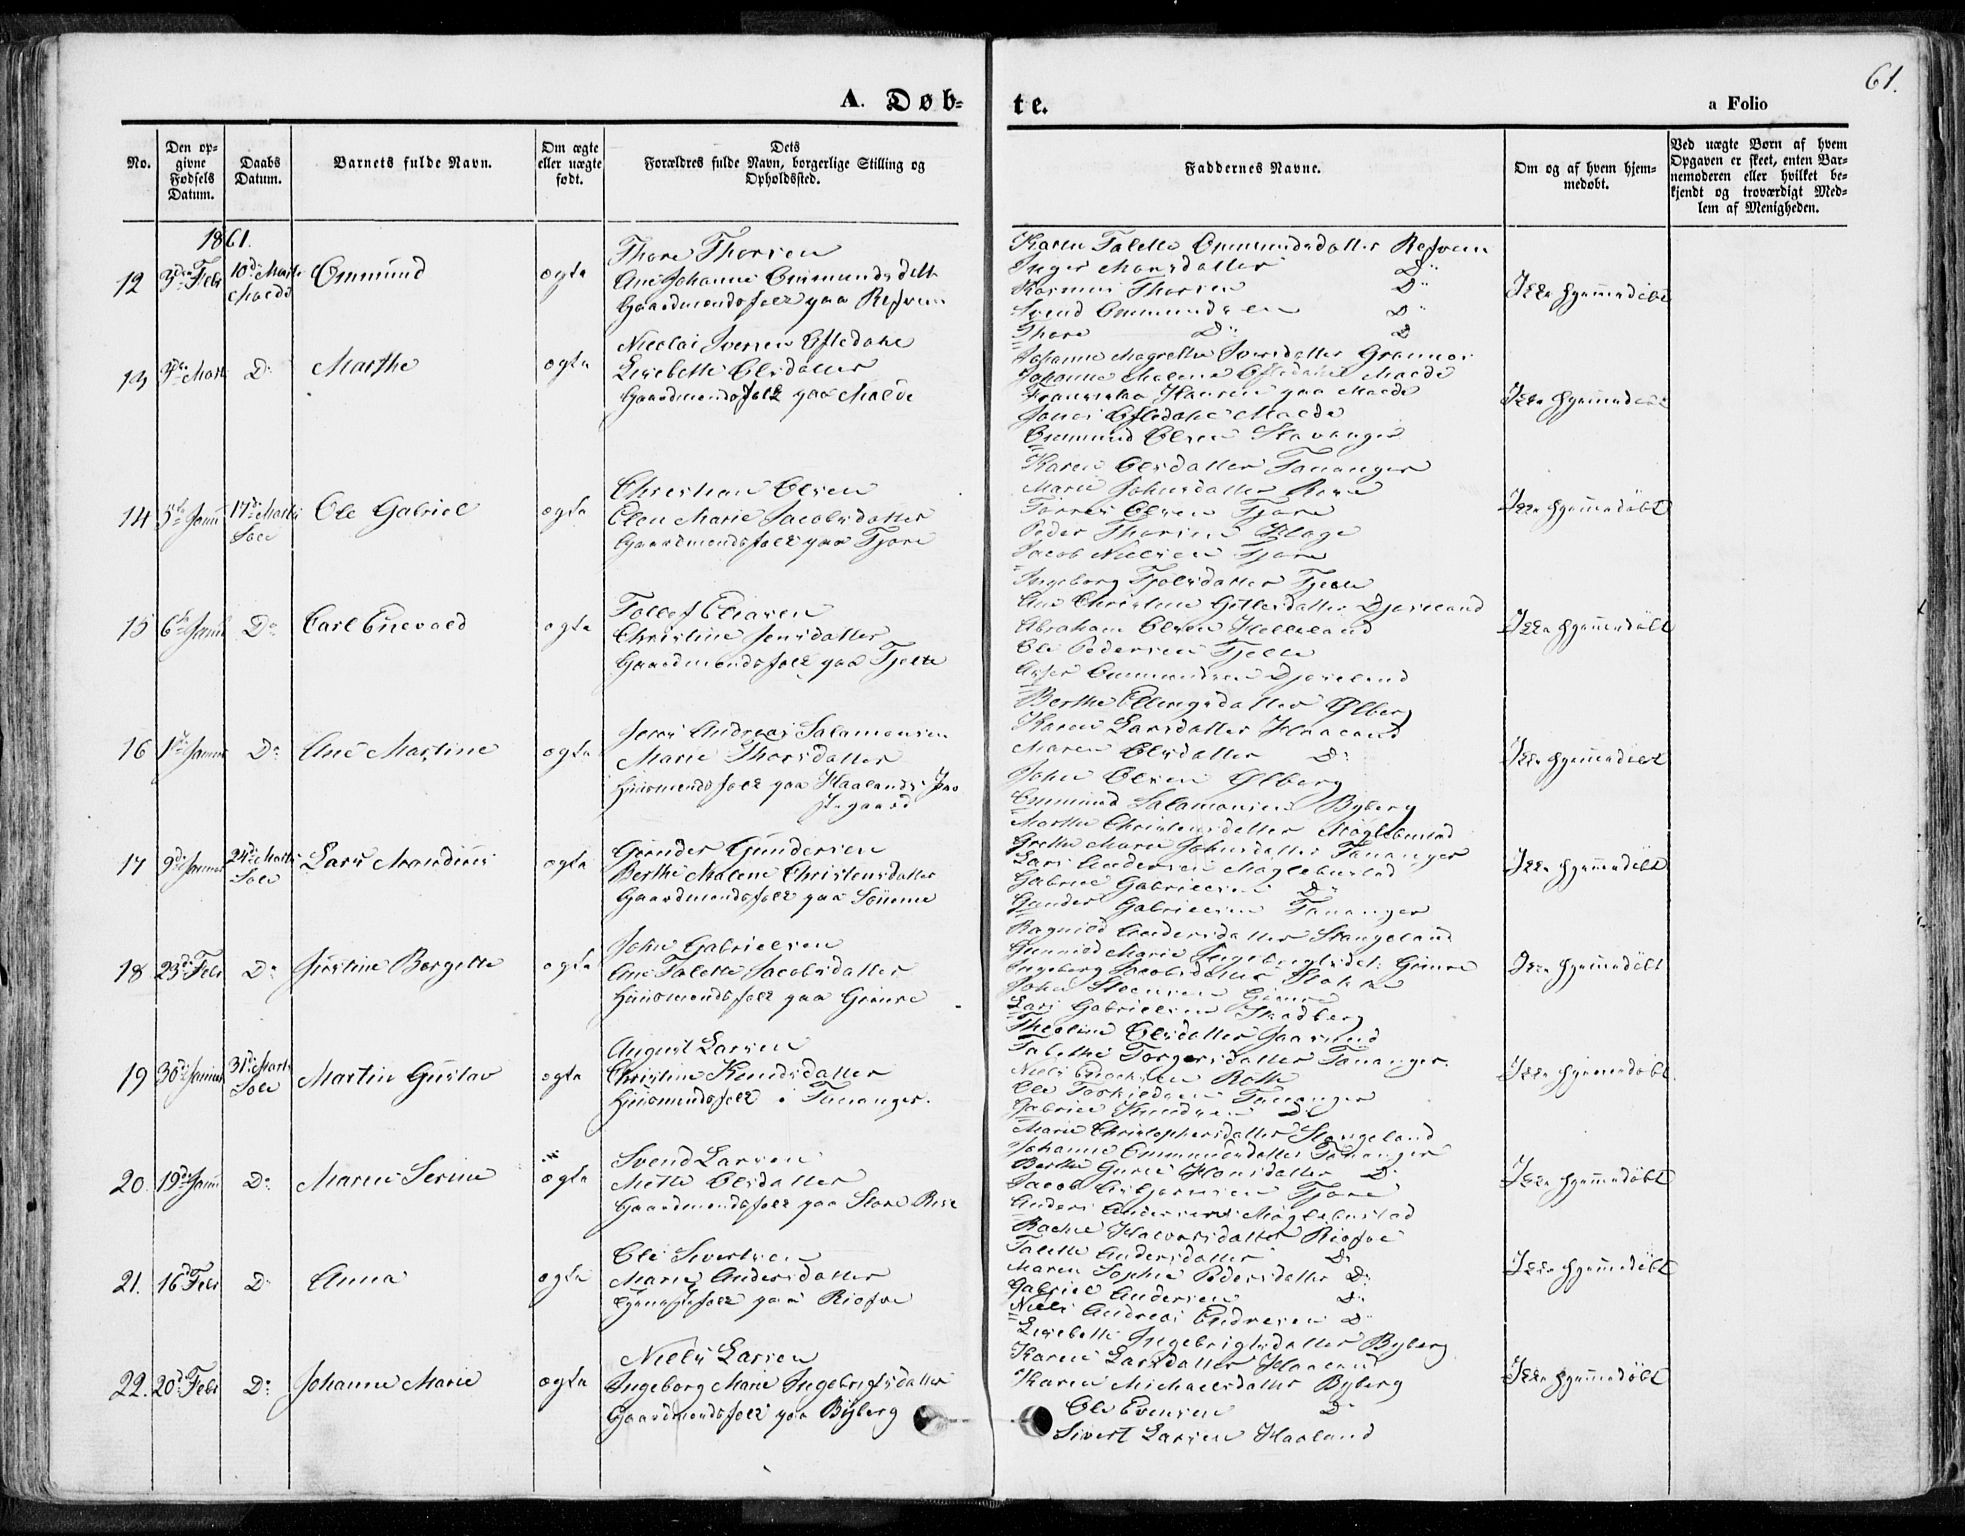 61.
A. Døb-
te.
a Folio
No.
Den op-
givne
Fødsels
Datum.
Daabs
Datum.
Barnets fulde Navn.
Om ægte
eller uægte
født.
Dets
Forældres fulde Navn, borgerlige Stilling og
Opholdssted.
Faddernes Navne.
Om og af hvem hjem-
medøbt.
Ved uægte Børn af hvem
Opgaven er skeet, enten Bar-
nemoderen eller hvilket be-
kjendt og troværdigt Med-
lem af Menigheden.
1861.
12 3die Febr 10de Marts Malde Ommund ægte
Thore Thorsen
Ane Johanne Ommundsdatt
Gaardmandsfolk paa Refsnes
Karen Talette Ommundsdatter
Inger Monsdatter Do
Rasmus Thorsen Do
Svend Ommundsen Do
Thore Do Do
Ikke hjemmedøbt
13 Marts Do Marthe ægte
Nicolai Iversen Eftedahl
Lisebette Olsdatter
Gaardmandsfolk paa Malde
Johanne Magrethe Iversdatter
Johanne Malene Malde
Hansen paa Malde
Jonas Malde
Ommund Olsen Stavanger
Ikke hjemmedøbt
14 5te Janu 17de Marts Sole Ole Gabriel ægte
Christian Olsen
Elen Marie Jacobsdatter
Gaardmandsfolk paa Tjore
Karen Olsdatter Tananger
Marie Johnsdatter
Torres Olsen Tjore
Peder Thorsen
Jacob Nielsen Tjore
Ikke hjemmedøbt
15 6te Janu Do Carl Enevald ægte
Tollef Eliasen
Christine Jensdatter
Gaardmandsfolk paa Tjelte
Ingeborg Tjelte
Ane Christine Djøseland
Abraham Olsen Helleland
Ole Pedersen Tjelte
Ommundsen Djøseland
Ikke hjemmedøbt
16 1ste Januar Do Ane Martine ægte
Jens Andreas Salamonsen
Marie Thorsdatter
Huusmandsfolk paa Haalands
gaard
Berthe Ellingsdatter Ølberg
Karen Larsdatter Haaland
Maren Olsdatter Do
John Olsen Ølberg
Ommund Salamonsen Byberg
Ikke hjemmedøbt
17 9de Januar 24de Marts Sole Lars Mandius ægte
Gunder Gundersen
Berthe Malene Christensdatter
Gaardmandsfolk paa Sømme
Marthe Christensdatter Møglebustad
Grethe Marie Johnsdatter Tananger
Lars Andersen Møglebustad
Gabriel Gabrielsen Do
Gunder Gabrielsen Tananger
Ikke hjemmedøbt
18 23de Febr Do Justine Bergitte ægte
John Gabrielsen
Ane Talette Jacobsdatter
Huusmandsfolk paa Gimre
Ragnild Andersdatter Stangeland
Gunnild Marie Ingebrigtsdat: Gimre
Ingeborg Jacobsdatter
John Gimre
Lars Gabrielsen Skadberg
Ikke hjemmedøbt
19 30te Januar 31te Marts Sole Martin Gustav ægte
August Larsen
Christine Knudsdatter
Huusmandsfolk i Tananger.
Theoline Olsdatter
Tabethe Torgersdatter Tananger.
Niels
Ole Torkildsen Tananger
Gabriel Knudsen Do
Ikke hjemmedøbt.
20. 19de Janu Do Maren Serine ægte
Svend Larsen
Mette Olsdatter
Gaardmandsfolk paa Store Risa
Marie Christophersdatter Stangeland
Johanne Ommundsdatter Tananger
Berthe Gurie Hansdatter Do
Jacob Asbjørnsen Tjore
Anders Andersen Møglebustad
Ikke hjemmedøbt
21. 16de Febr Do Anna ægte
Ole Sivertsen
Marie Andersdatter
paa Risfoe
Rachel Halvorsdatter Risfoe
Talette Andersdatter Do
Maren Sophie Pedersdatter Do
Gabriel Andersen Do
Niels Andreas Endresen Do
Ikke hjemmedøbt
22. 20de Febr Do Johanne Marie ægte
Niels Larsen
Ingeborg Marie Ingebrigtsdatter
Gaardmandsfolk paa Byberg
Lisebette Ingebrigtsdatter Byberg
Karen Larsdatter Haaland
Karen Michaelsdatter Byberg
Ole Evensen Do
Sivert Larsen Haaland
Ikke hjemmedøbt